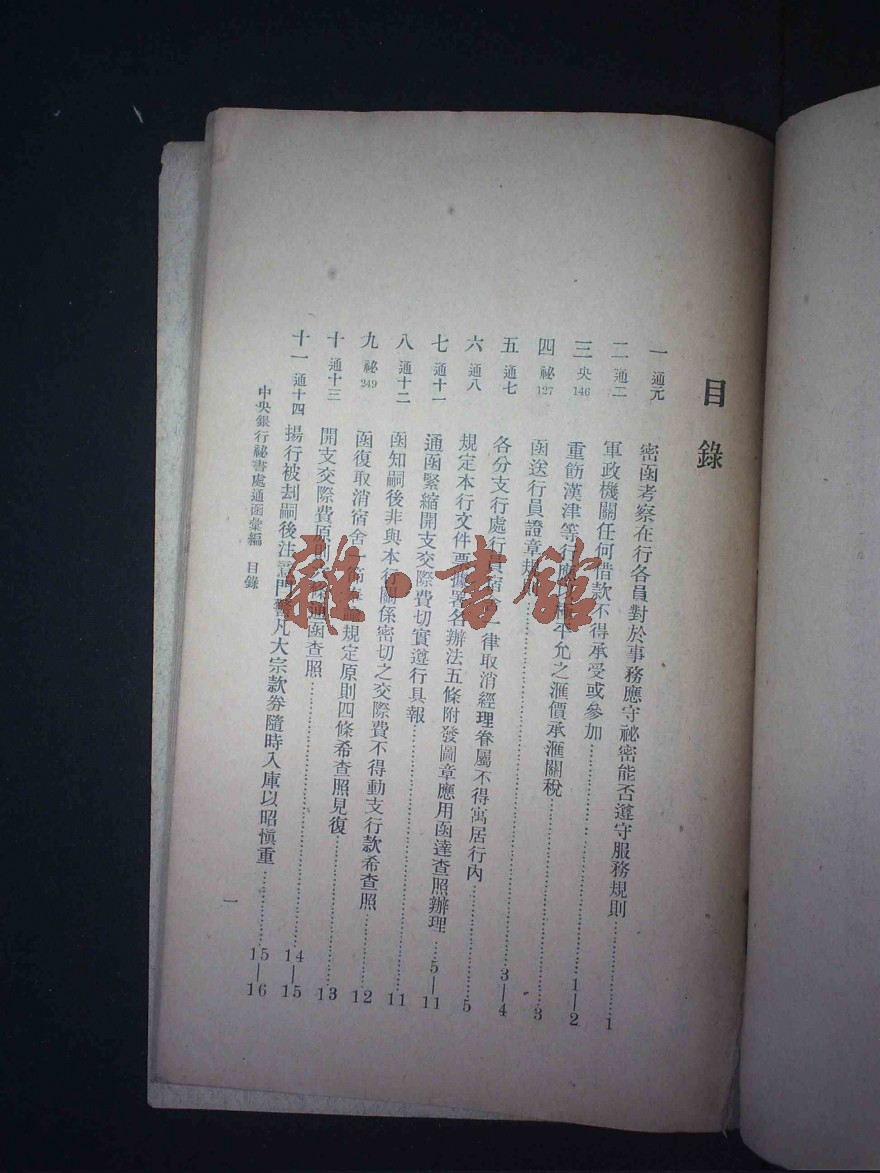 目錄
一 通元 密函考察在行各員對於事務應守祕密能否遵守服務規則……1
二 通二 軍政機關任何借款不得承受或參加……1—2
三 央146 重飭漢津等行應平允之滙價承滙關稅……3
四 祕127 函送行員證章規……3—4
五 通七 各分支行處行員宿舍一律取消經理眷屬不得寓居行內……5
六 通八 規定本行文件票據署名辦法五條附發圖章應用函達查照辦理……5—11
七 通十一 通函緊縮開支交際費切實遵行具報……11
八 通十二 函知嗣後非與本行關係密切之交際費不得動支行款希查照……12
九 祕249 函復取消宿舍一規定原則四條希查照見復……13
十 通十三 開支交際費原則條通函查照……14—15
十一 通十四 揚行被刦嗣後注意門警凡大宗款券隨時入庫以昭慎重……15—16
中央銀行祕書處通函彙編 目錄
一
雜·書館